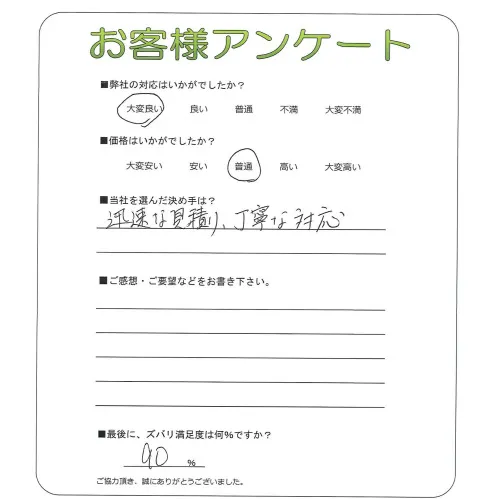 お客様アンケート
■弊社の対応はいかがでしたか?
大変良い 良い 普通 不満 大変不満
■価格はいかがでしたか?
大変安い 安い 普通 高い 大変高い
■当社を選んだ決め手は?
迅速な見積り、丁寧な対応
■ご感想・ご要望などをお書き下さい。
■最後に、ズバリ満足度は何%ですか?
90 %
ご協力頂き、誠にありがとうございました。